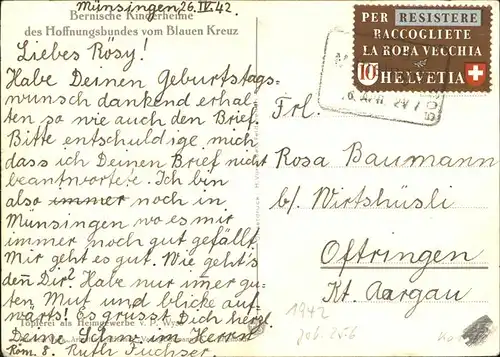 Münsingen 26.IV.42.
Bernische Kinderheime
des Hoffnungsbundes vom Blauen Kreuz
Liebes Rösy!
Habe Deinen Geburtstags-
wunsch dankend erhal-
ten so wie auch den Brief.
Bitte entschuldige mich
dass ich Deinen Brief nicht
beantwortere. Ich bin
also immer noch in
Münsingen wo es mir
immer noch gut gefällt.
Mir geht es gut. Wie geht's
den̄ Dir? Habe nur imer gu-
ten Mut und blicke auf-
wärts! Es grüsst Dich herzl.
Deine Schw. im Herrn
Röm. 8. Ruth
Töpferei als Heimgewerbe v. P. Wyss
PER RESISTERE
RACCOGLIETE
LA ROBA VECCHIA
10 HELVETIA
Frl.
Rosa Baumann
b/ Wirtshüsli
Oftringen
Kt. Aargau
1942